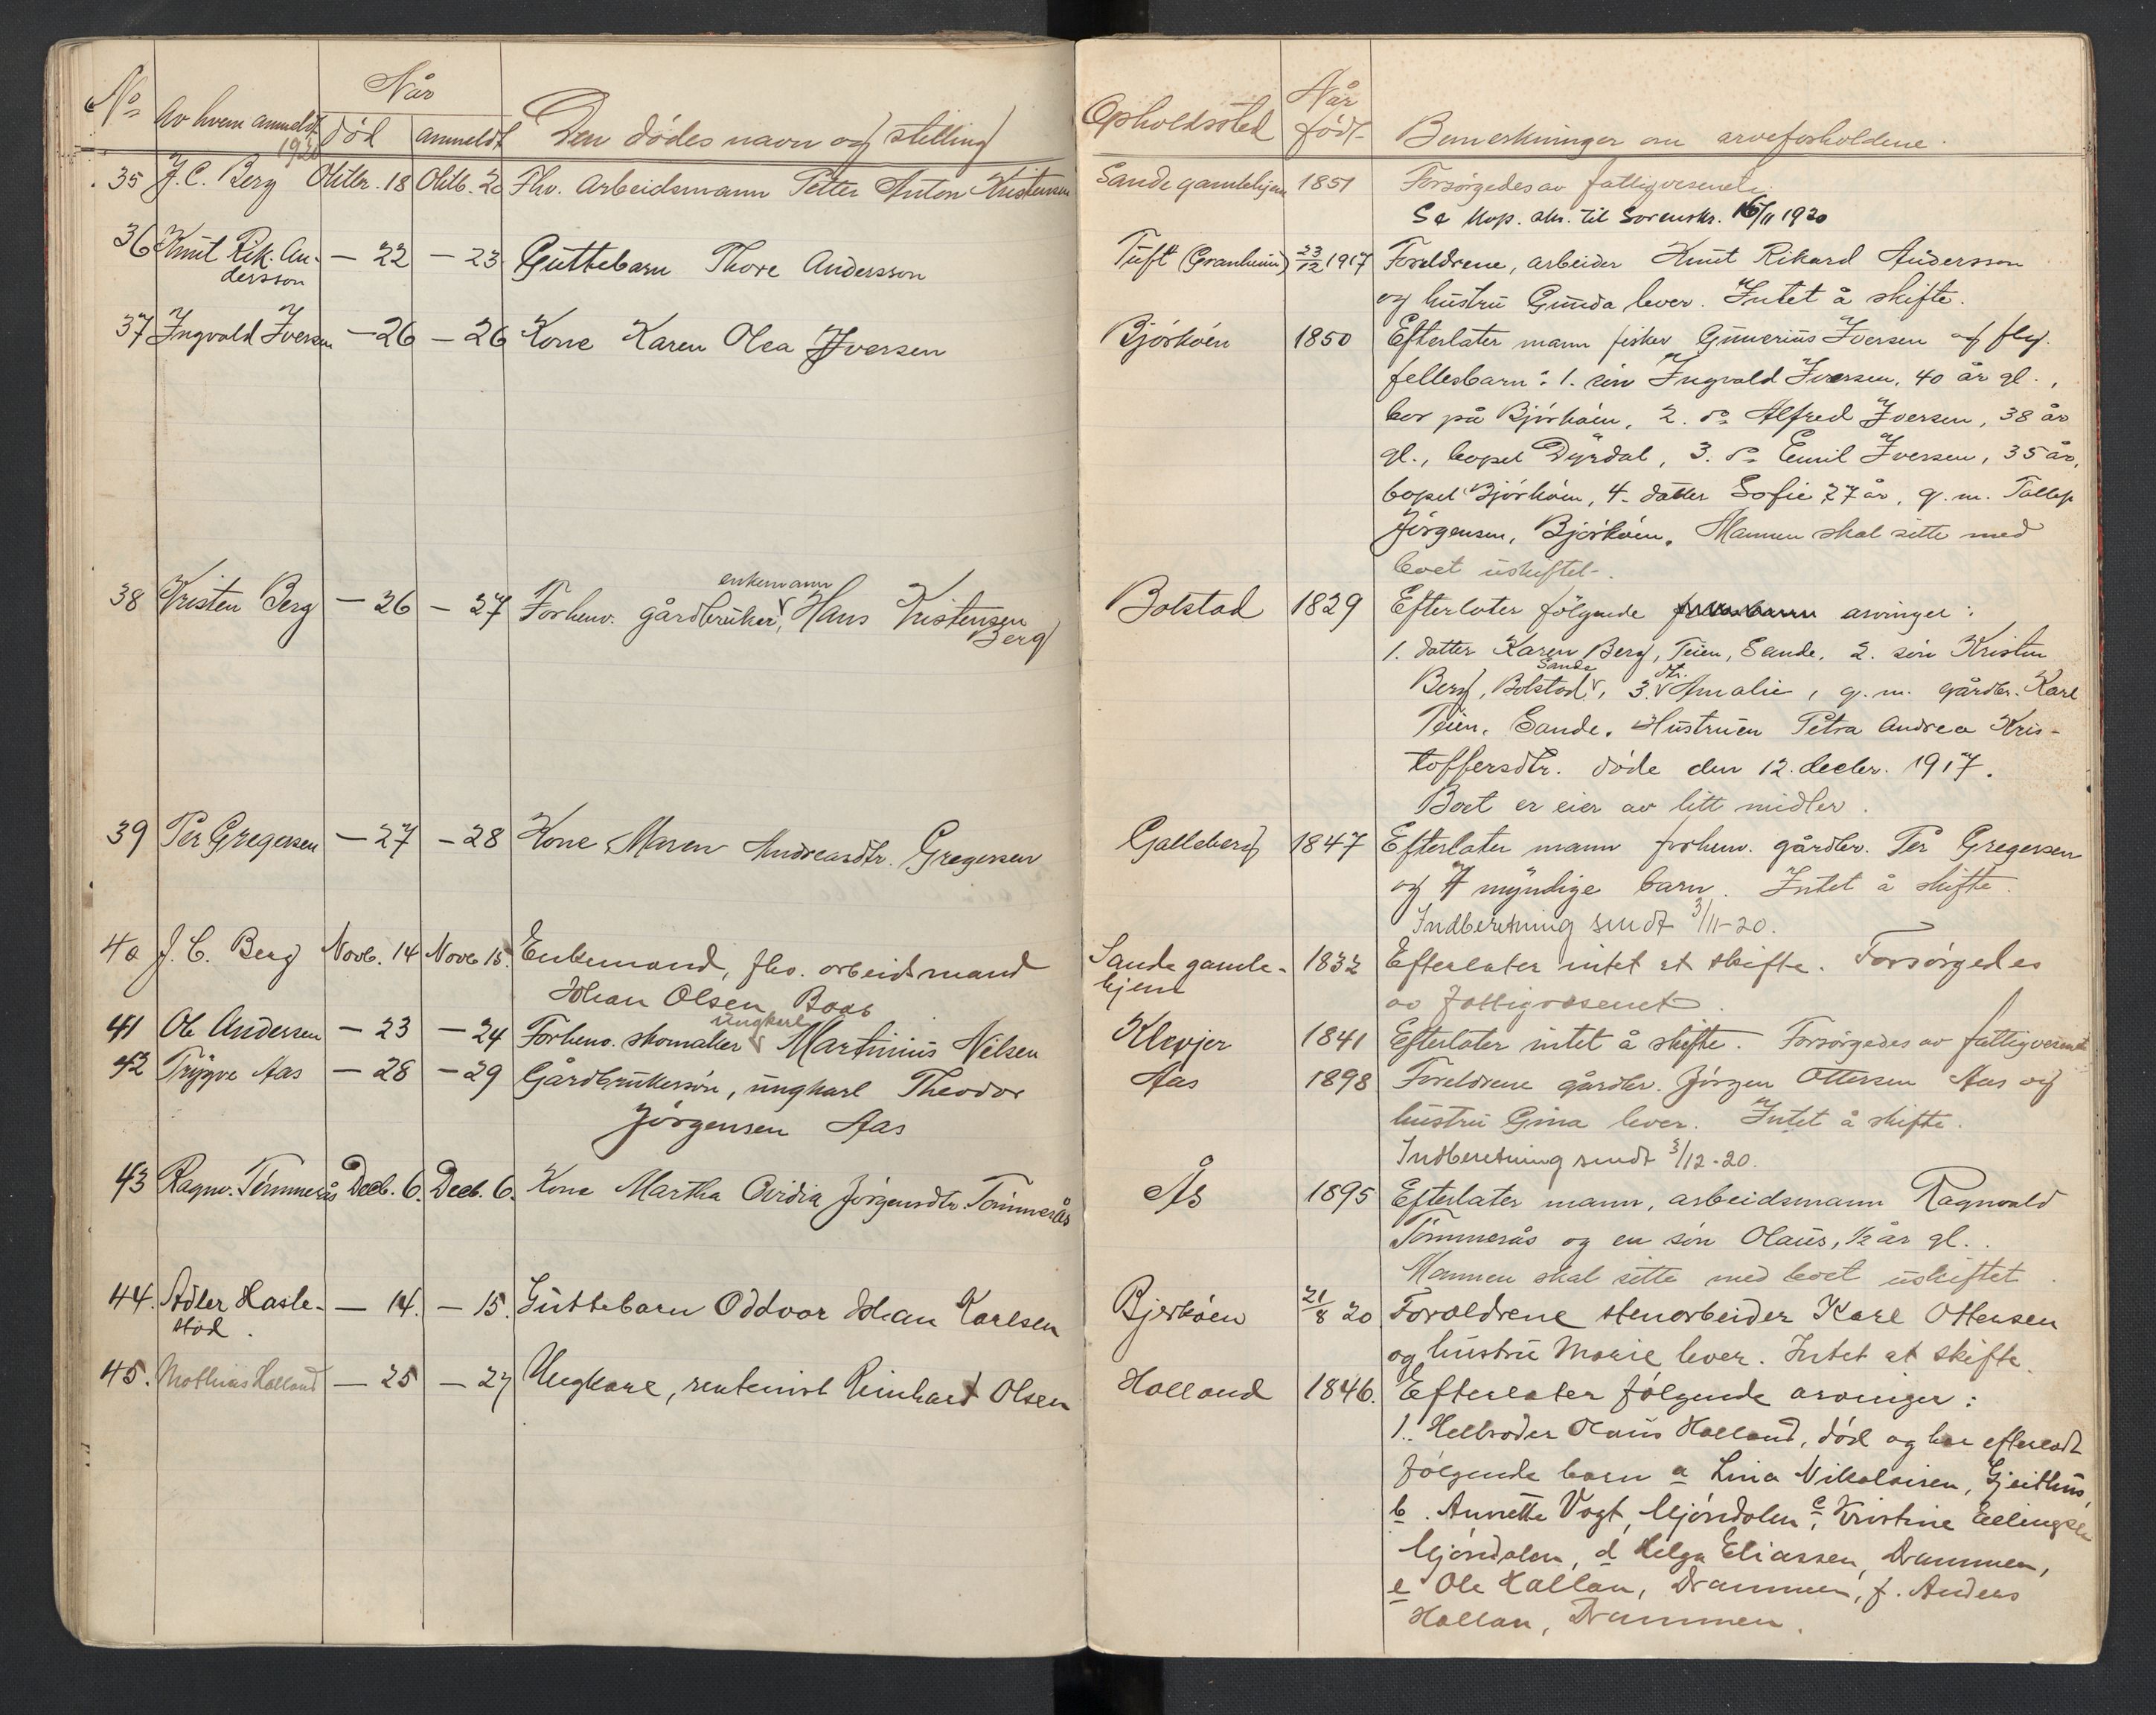 No
Av hvem anmeldt
1920
Når
død
anmeldt
Den dødes navn og stilling
Opholdssted
Når født
Bemerkninger om arveforholdene.
35 J. C. Berg Oktbr. 18 Oktb. 20 Fhv. Arbeidsmann Petter Anton Kristensen Sande gamlehjem 1851 Forsørgedes av fattigvesenet.
Se kop. skr. til Sorenskr. 16/11 1920
36 Knut Rik. An- — 22 — 23 Guttebarn Thore Andersson Tuft (Granheim) 23/12 1917 Foreldrene, arbeider Knut Rikard Andersson
dersson og hustru Gunda lever. Intet å skifte.
37 Ingvald Iversen — 26 — 26 Kone Karen Olea Iversen Bjørkøen 1850 Efterlater mann fisker Gunerius Iversen og flg.
fellesbarn: 1. søn Ingvald Iversen, 40 år gl.,
bor på Bjørkøen, 2. do Alfred Iversen, 38 år
gl., bopel Dyrdal, 3. do Emil Iversen, 35 år,
bopel Bjørkøen, 4. datter Sofie 27 år, g. m. Tallef
Jørgensen, Bjørkøen. Mannen skal sitte med
boet uskiftet.
enkemann
38 Kristen Berg — 26 — 27 Forhenv. gårdbruker, Hans Kristensen Bolstad 1829 Efterlater følgende arvinger:
Berg
1. datter Karen Berg, Teien, Sande. 2. søn Kristen
Sande dtr.
Berg, Bolstad, 3. Amalie, g. m. gårdbr. Karl
Teien, Sande. Hustruen Petra Andrea Kris-
toffersdtr. døde den 12. decbr. 1917.
Boet er eier av litt midler.
39 Per Gregersen — 27 — 28 Kone Maren Andreasdtr. Gregersen Galleberg 1847 Efterlater mann forhenv. gårdbr. Per Gregersen
og 7 myndige barn. Intet å skifte.
Indberetning sendt 3/11-20.
40 J. C. Berg Novb. 14 Novb 15. Enkemand, fhv. arbeidsmand Sande gamle- 1832 Efterlater intet at skifte. Forsørgedes
Johan Olsen Baab hjem av fattigvæsenet.
ungkarl
41 Ole Andersen — 23 — 24 Forhenv. skomaker Martinius Nilsen Klevjer 1841 Efterlater intet å skifte. Forsørgedes av fattigvesenet
42 Trygve Aas — 28 — 29 Gårdbrukersøn, ungkarl Theodor Aas 1898 Foreldrene gårdbr. Jørgen Ottersen Aas og
Jørgensen Aas hustru Gina lever. Intet å skifte.
Indberetning sendt 3/12-20.
43 Ragnv. Tømmerås Decb. 6. Decb. 6. Kone Martha Ovidia Jørgensdtr. Tømmerås Ås 1895 Efterlater mann, arbeidsmann Ragnvald
Tømmerås og en søn Olaus, 1/2 år gl.
Mannen skal sitte med boet uskiftet.
44. Adler Hasle- — 14. — 15. Guttebarn Oddvar Johan Karlsen Bjerkøen 21/8 20 Forældrene stenarbeider Karl Ottersen
stad. og hustru Marie lever. Intet at skifte.
45. Mathias Holland — 25 — 27 Ungkarl, rentenist Reinhart Olsen Holland 1846. Efterlater følgende arvinger:
1. Helbroder Olaus Holland, død og har efterladt
følgende barn a Lina Nikolaisen, Gjeithus,
b. Annette Vogt, Mjøndalen, c Kristine Ellingsen
Mjøndalen, d Helga Eliassen, Drammen,
e Ole Hallan, Drammen, f. Anders
Hallan, Drammen.